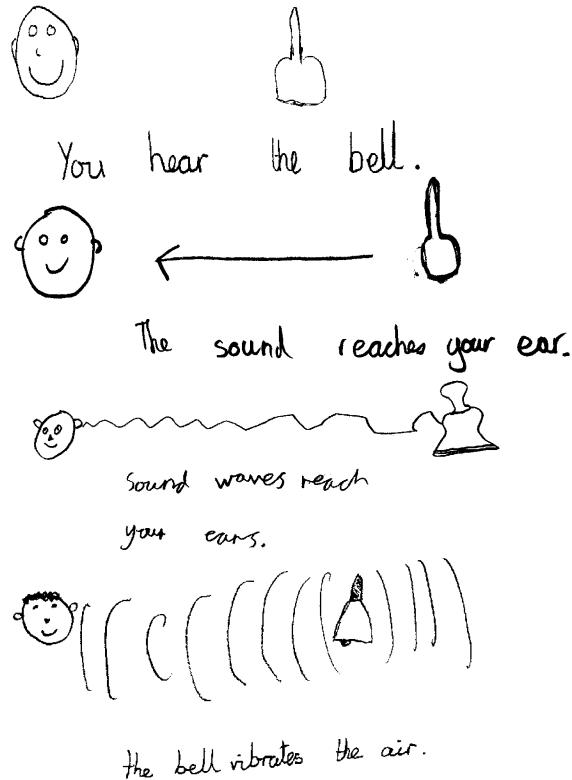 You hear the bell.
The sound reaches your ear.
Sound waves reach
your ears.
the bell vibrates the air.